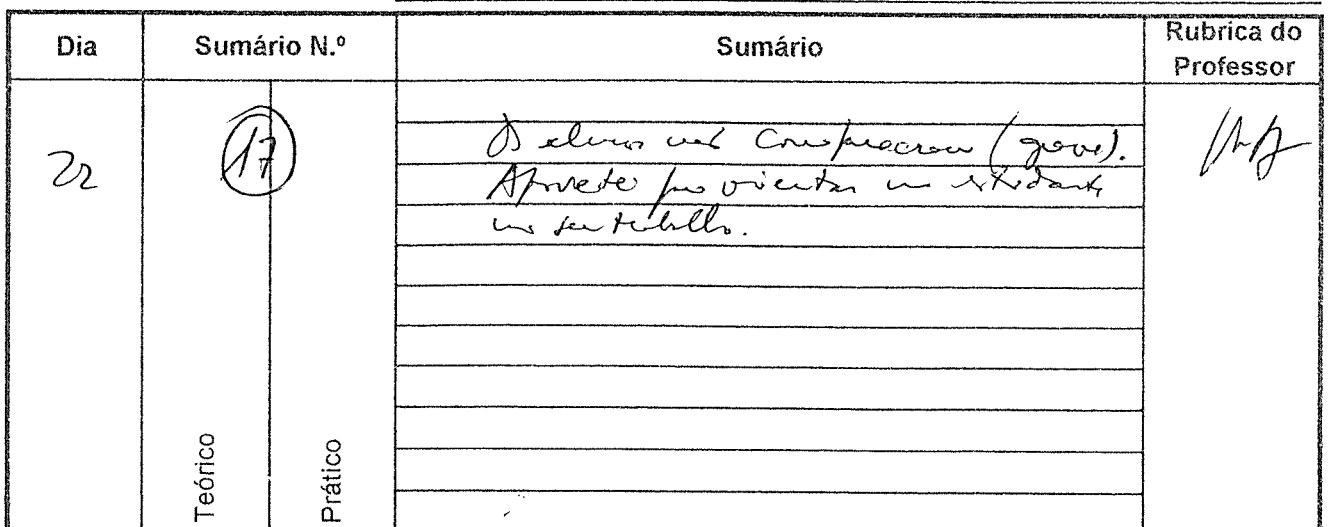 Dia Sumário N.º Sumário Rubrica do Professor
22 17 Os alunos não compareceram (greve).
Aproveitei para orientar um estudante
no seu trabalho.
Teórico
Prático